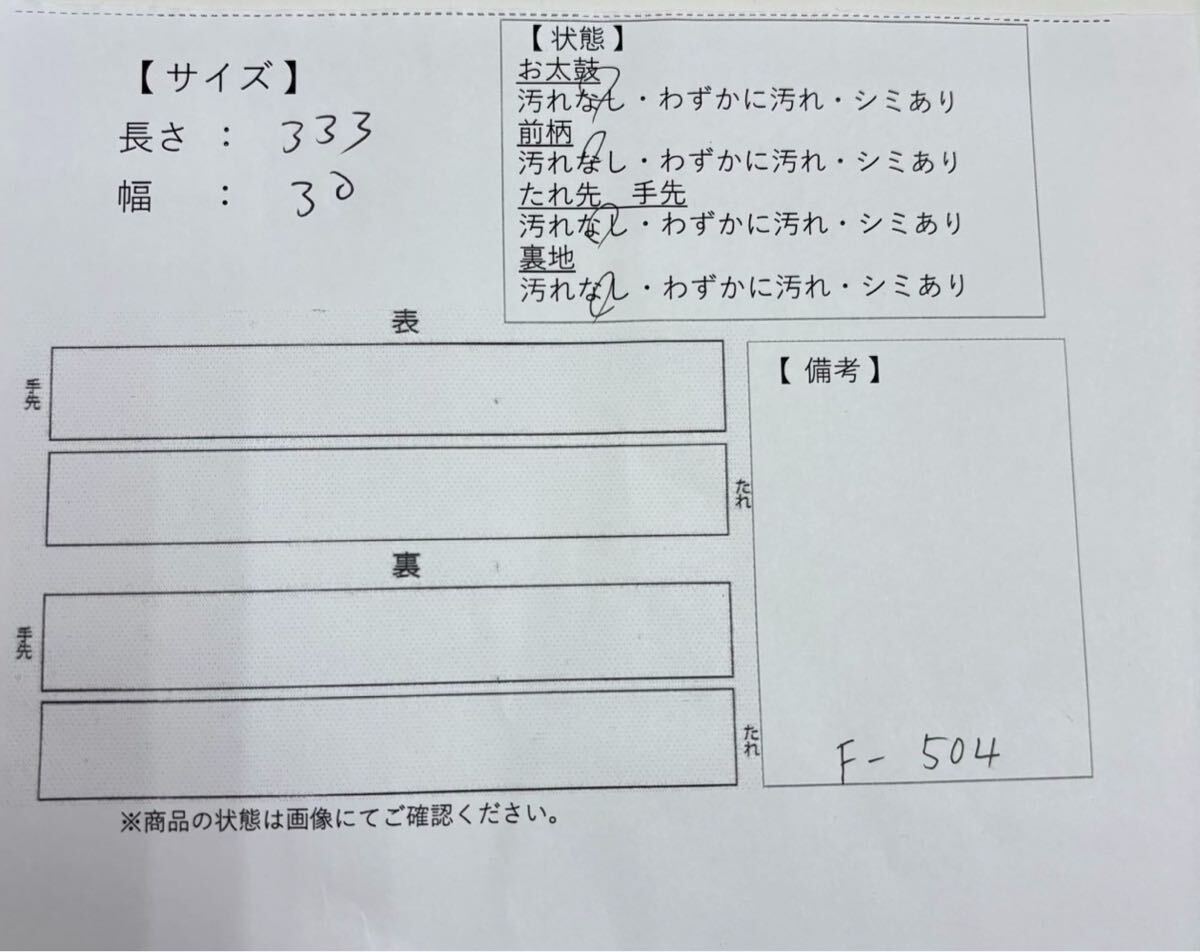 【サイズ】
長さ : 333
幅 : 30
【状態】
お太鼓
汚れなし・わずかに汚れ・シミあり
前柄
汚れなし・わずかに汚れ・シミあり
たれ先 手先
汚れなし・わずかに汚れ・シミあり
裏地
汚れなし・わずかに汚れ・シミあり
表
手先
たれ
裏
手先
たれ
【備考】
F- 504
※商品の状態は画像にてご確認ください。